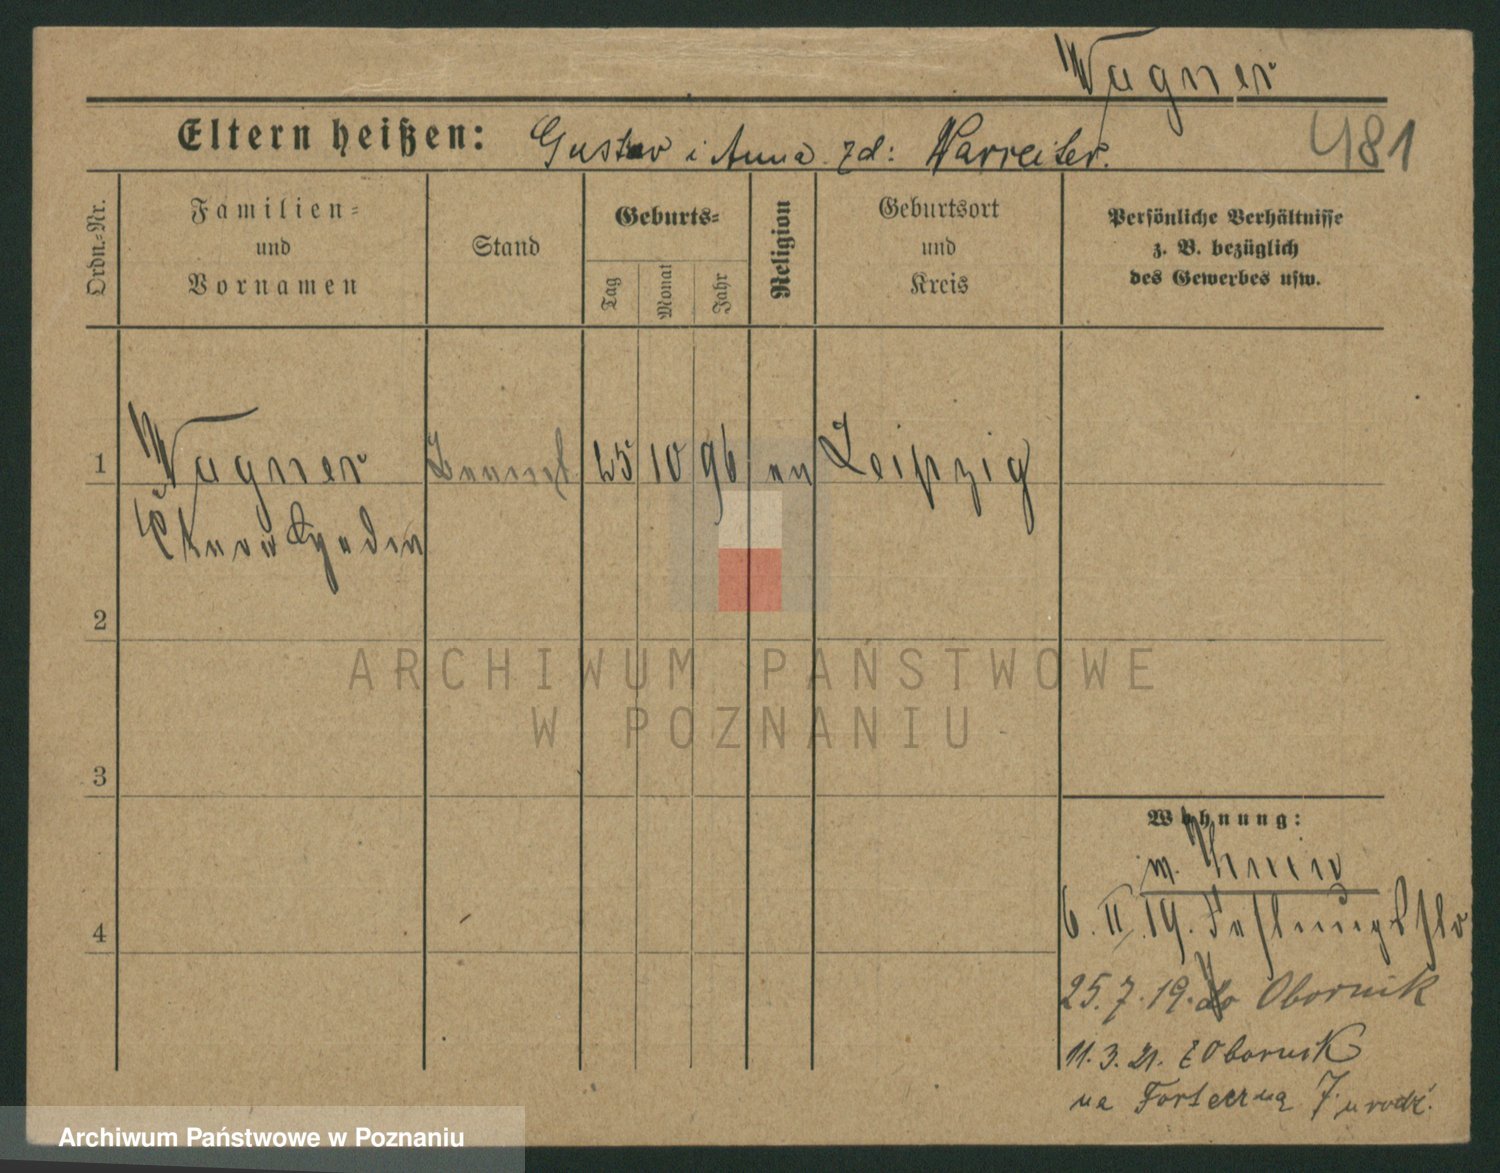 Wagner
Eltern heißen: Gustav i Anna zd: Warreiter.
481
Ordn.-Nr.
Familien-
und
Vornamen
Stand
Geburts-
Tag
Monat
Jahr
Religion
Geburtsort
und
Kreis
Persönliche Verhältnisse
z. B. bezüglich
des Gewerbes usw.
1 Wagner 25 10 96 Leipzig
2
3
4
Wohnung:
6. II. 19.
25.7.19. do Obornik
11.3.21. z Obornik
na Forteczną 7
ARCHIWUM PAŃSTWOWE
W POZNANIU
Archiwum Państwowe w Poznaniu